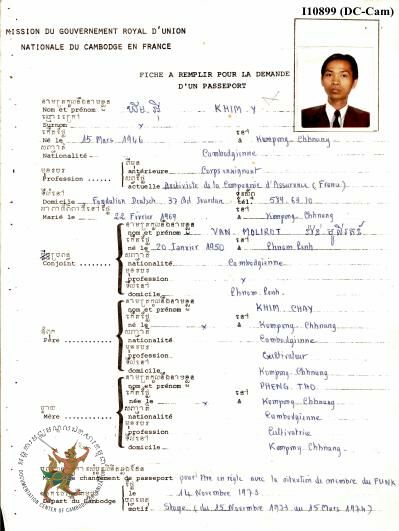 I10899 (DC-Cam)
MISSION DU GOUVERNEMENT ROYAL D'UNION
NATIONALE DU CAMBODGE EN FRANCE
FICHE A REMPLIR POUR LA DEMANDE
D'UN PASSEPORT
នាមត្រកូលនិងនាមខ្លួន
Nom et prénom KHIM-Y
Surnom x
Né le 15 Mars 1946 à Kompong Chhnang
Nationalité Cambodgienne
antérieure Corps enseignant
Profession actuelle Archiviste de la Compagnie d'Assurance (France)
Domicile Fondation Deutsch 37 Bd Jourdan tél. 589.69.10
Marié le 22 Février 1969 à Kompong Chhnang
នាមត្រកូលនិងនាមខ្លួន
nom et prénom VAN MOLIROT
né le 20 Janvier 1950 à Phnom Penh
Conjoint nationalité Cambodgienne
profession
domicile Phnom Penh
nom et prénom KHIM CHAY
né le x à Kompong Chhnang
Père nationalité Cambodgienne
profession Cultivateur
domicile Kompong Chhnang
nom et prénom PHENG THO
née le x à Kompong Chhnang
Mère nationalité Cambodgienne
profession Cultivatrice
domicile Kompong Chhnang
changement de passeport pour être en règle avec la situation de membre du FUNK
Départ du Cambodge 14 Novembre 1973
motif Stage (du 15 Novembre 1973 au 15 Mars 1974)
DOCUMENTATION CENTER OF CAMBODIA